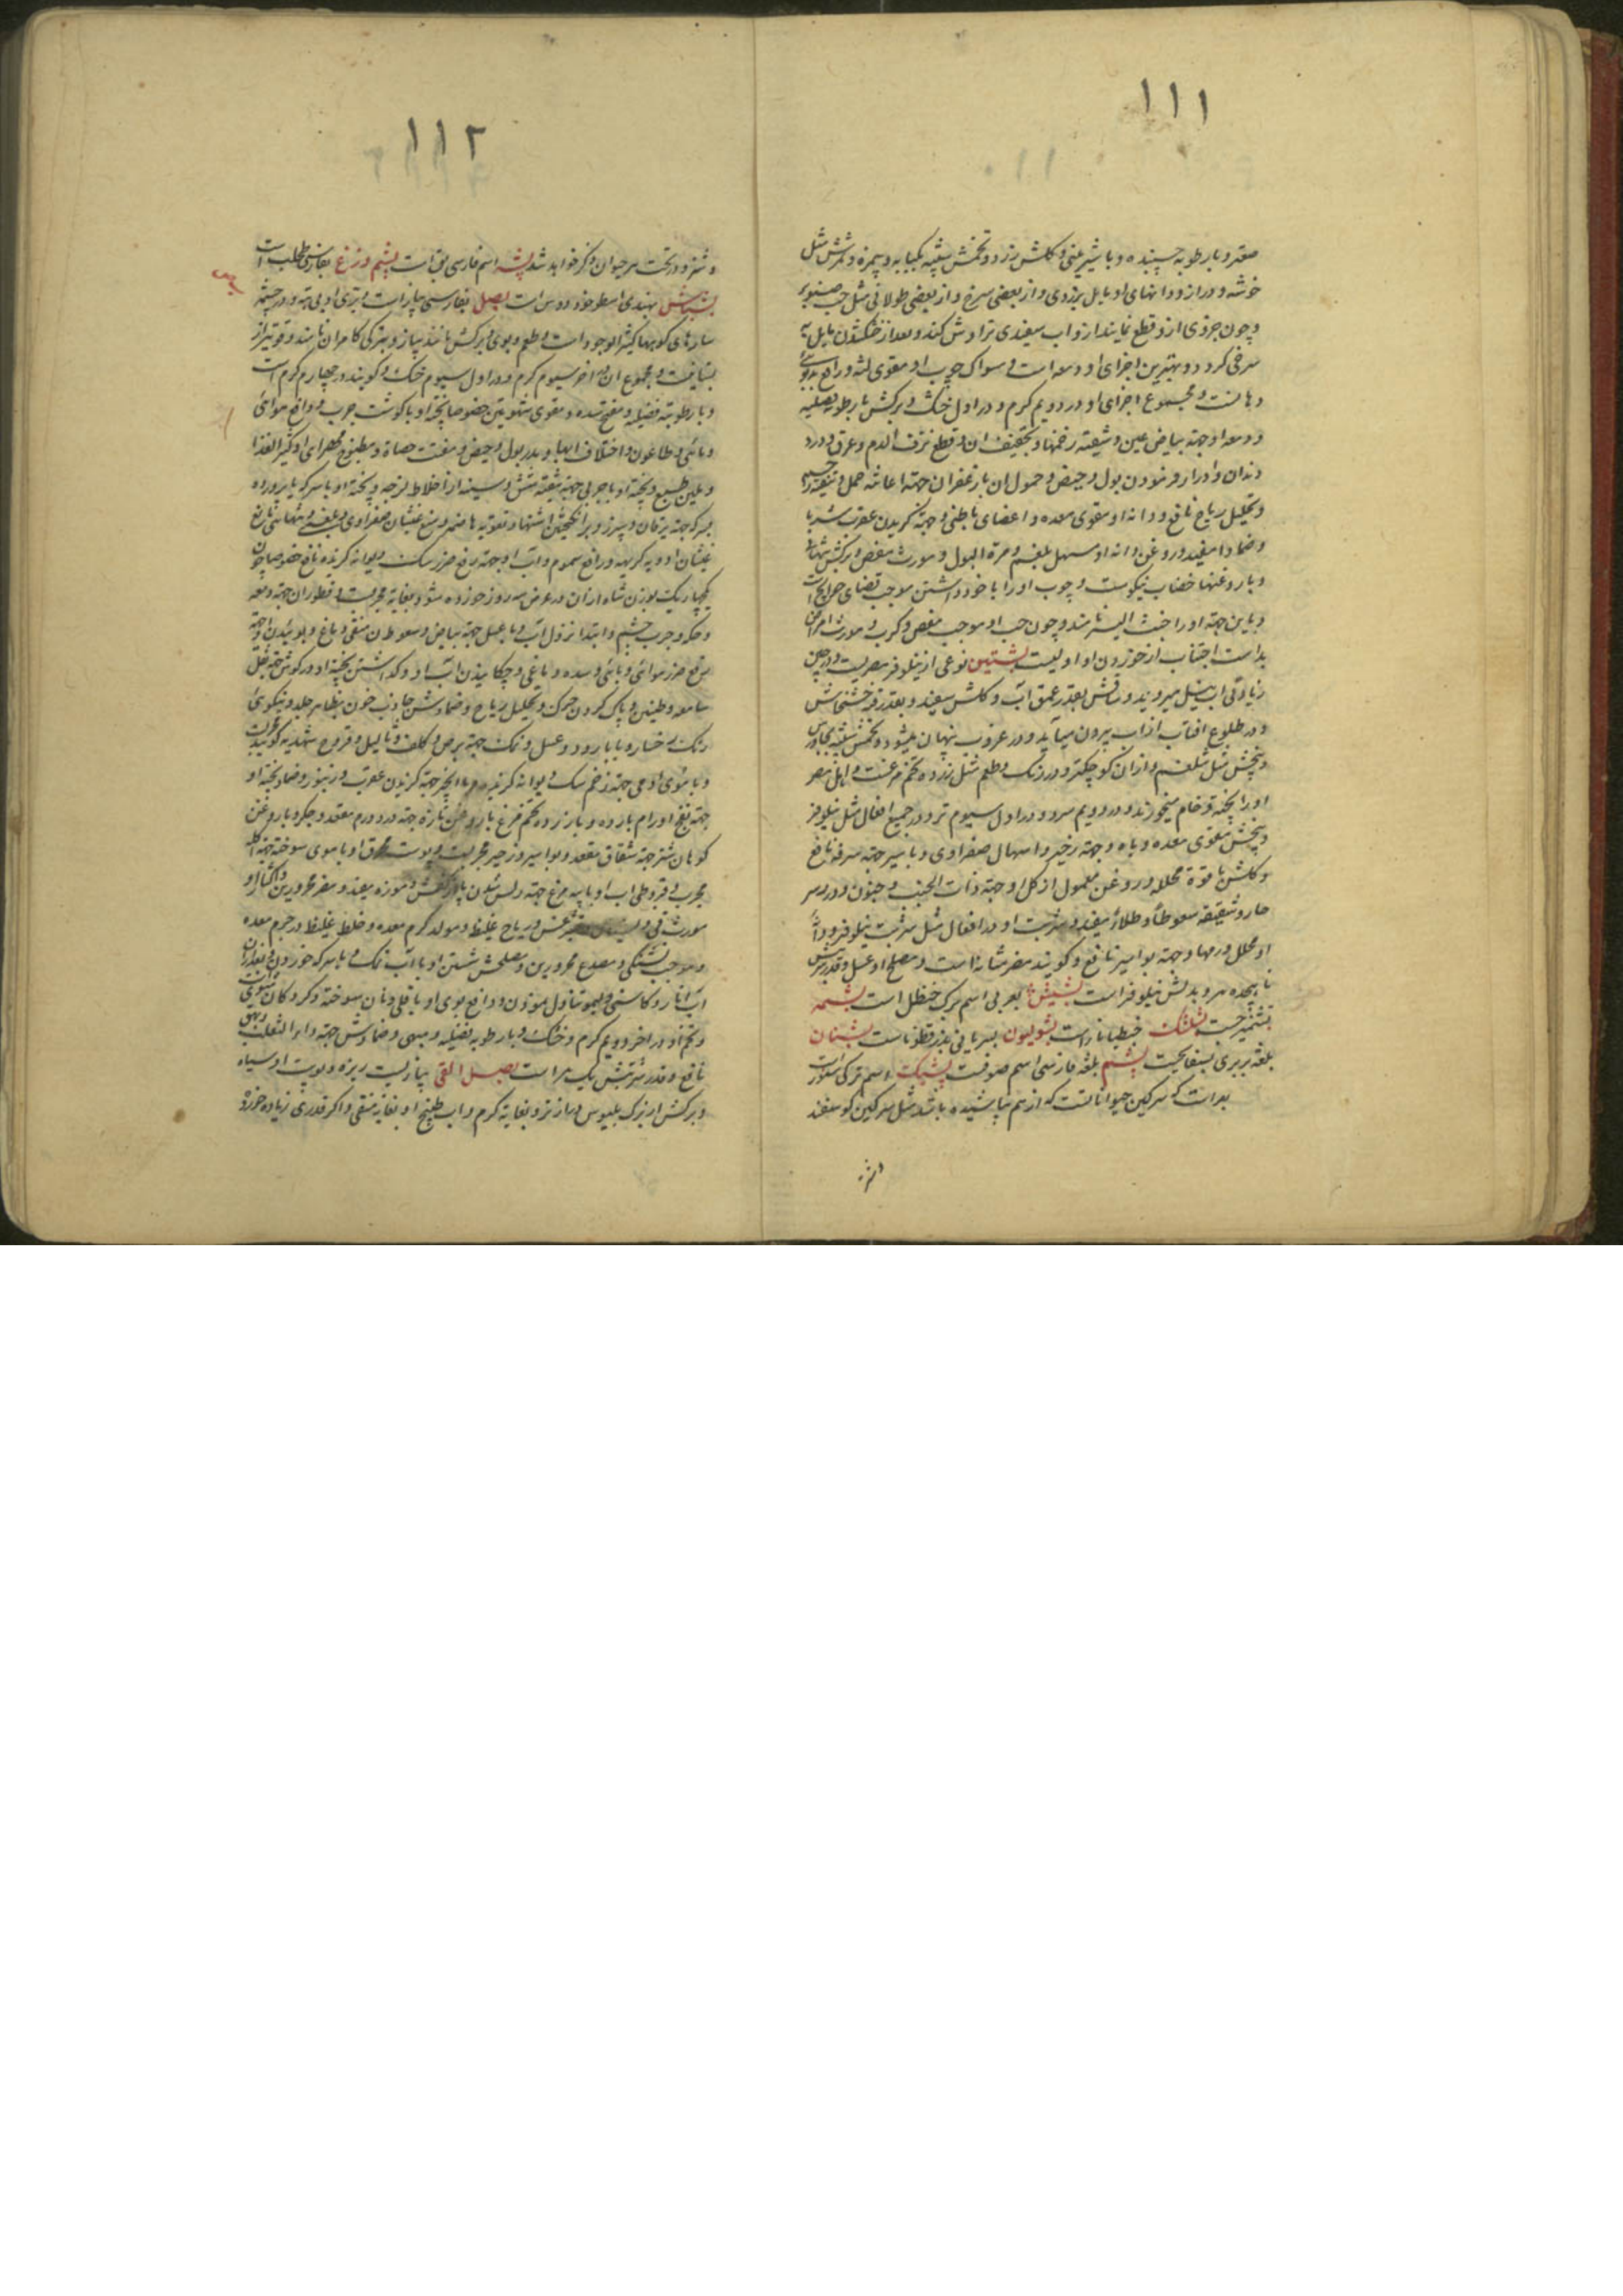 ۱۱۱
صعتر و با رطوبه چسپنده و با شیرینی و کلش زرد و تخمش شبیه بکبابه و پیمزه و ثمرش مثل
خوشه و دراز و دانهای او مایل بزردی و از بعضی سرخ و از بعضی طولانی مثل حب صنوبر
و چون جزوی ازو قطع نمایند ازو اب سفیدی تراوش کند و بعد از خشکشدن مایل به
سرخی کردد و بهترین اجزای او دمعه است و مسواک چوب او مقوی لثه و رافع بدبویی
دهانست و مجموع اجزای او در دویم کرم و در اول خشک و برکش با رطوبه فضلیه
و دمعه او جهة بیاض عین و تنقیه زخمها و تجفیف ان و قطع نزف الدم و عرق و درد
دندان و ادرار فرمودن بول و حیض و حمول ان با زعفران جهة اعانه حمل و تنقیه رحم
و تحلیل ریاح نافع و دانه او مقوی معده و اعضای باطنی و جهة کزیدن عقرب شربا
و ضمادا مفید و روغن دانه او مسهل بلغم و مرة البول و مورث مغص و برکش
و با روغنها خضاب نیکوست و چوب او را با خود داشتن موجب قضای حوایج است
و باین جهة او را نامند و چون حب او موجب مغص و کرب و مورث امراض
بد است اجتناب از خوردن او اولیست بشنین نوعی از نیلوفر مصریست و در حین
زیادتی اب نیل میروید و ساقش بقدر عمق آب و کلش سفید و بقدر قبه خشخاش
و در طلوع افتاب از اب بیرون میآید و در غروب پنهان میشود و تخمش شبیه بجاورس
و بیخش مثل شلغم و ازان کوچکتر و در رنک و طعم مثل زرده تخم مرغست و اهل مصر
او را پخته و خام میخورند و در دویم سرد و در اول سیوم تر و در جمیع افعال مثل نیلوفر
و بیخش مقوی معده و باه و جهة زحیر و اسهال صفراوی و با سیر جهة سرفه نافع
و کلش با قوة محلله و روغن معمول از کل او جهة ذات الجنب و جنون و درد سر
حار و شقیقه سعوطا و طلاء مفید و شربت او در افعال مثل شربت نیلوفر و دانه
او محلل ورمها و جهة بواسیر نافع و کویند مضر مثانه است و مصلح او عسل و قدر شربتش
تا پنجدرم و بدلش نیلوفر است بشبش بعربی اسم برک حنظل است بشمه
تشمیزج است بشنک خبطیانا است بشولیون بسریانی بزرقطونا است بشنان
بلغة بربری بسفایجست پشم بلغة فارسی اسم صوفست پشک اسم ترکی سنور است
بعر است که سرکین حیوانانست که از هم پاشیده باشد مثل سرکین کوسفند
۱۱۲
و شتر و در تحت هر حیوان ذکر خواهد شد پشه اسم فارسی بق است پشم وزغ بفارسی طحلب است
بشباش بهندی اسطوخودوس است بصل بفارسی پیاز است و بری او بی تبه و در چشمه
سارهای کوهها کثیر الوجود است و طعم و بوی و برکش مانند پیاز و بترکی کامران نامند و قویتر از
بستانیست و مجموع ان در اخر سیوم کرم و در اول سیوم خشک و کویند در چهارم کرم است
و با رطوبته فضلیه و مفتح سده و مقوی شهوتین خصوصا پخته او با کوشت چرب و دافع هوای
وبائی و طاعون و اختلاف ابها و مدر بول و حیض و مفتت حصاة و مطبوخ مهرای او کثیر الغذا
و ملین طبع و پخته او با چربی جهة تنقیه شش و سینه از اخلاط لزجه و پخته او با سرکه یا پرورده
بسرکه جهة یرقان و سپرز و برانکیختن اشتها و تقویه هاضمه و منع غثیان صفراوی و بلغمی و تنهائی مانع
غثیان ادویه کریهه و رافع سموم و آب او جهة رفع ضرر سک دیوانه کزیده نافع خصوصا چون
وزن شاه ازان در عرض سه روز خورده شود بغایة مجربست و قطور ان جهة دمعه
و حکه و جرب چشم و ابتدا نزول آب و با عسل جهة بیاض و سعوط ان منقی دماغ و بوئیدن و جهة
رفع ضرر هوای وبائی و سده دماغی و چکانیدن اب او و کذاشتن پخته او در کوش جهة ثقل
سامعه و طنین و پاک کردن چرک و تحلیل ریاح و ضمادش جاذب خون بظاهر جلد و نیکوئی
رنک رخسار و با بارود و عسل و نمک جهة برص و کلف و ثالیل و قروح شهدیه
و با موی آدمی جهة زخم سک دیوانه کزیده و با انجیر جهة کزیدن عقرب و زنبور و ضماد پخته او
جهة نضج اورام بارده و با زرده تخم مرغ با روغن تازه جهة درد و ورم مقعد و جکر و با روغن
کوهان شتر جهة شقاق مقعد و بواسیر و زحیر مجربست و پوست محرق او با موی سوخته جهة اکله
مجرب و قیروطی اب او با پیه مرغ جهة ریش شدن پا از کفش و موزه مفید و مضر محرورین و اکثار او
مورث قی و ریاح غلیظ و مولد کرم معده و خلط غلیظ در جرم معده
و موجب تشنکی و مصدع محرورین و مصلحش شستن او با آب نمک و با سرکه خوردن و بعد از ان
آب انار و کاسنی و لیمو تناول نمودن و دافع بوی او باقلی و نان سوخته و کردکان
و تخم او در اخر دویم کرم و خشک و با رطوبه فضلیه و مبهی و ضمادش جهة داء الثعلب
نافع و قدر شربتش یک درم است بصل القی پیازیست ریزه و پوست او سیاه
و برکش از برک بلبوس درازتر و بغایة کرم و اب طبیخ او بغایة مقئی و اکر قدری زیاده خورده